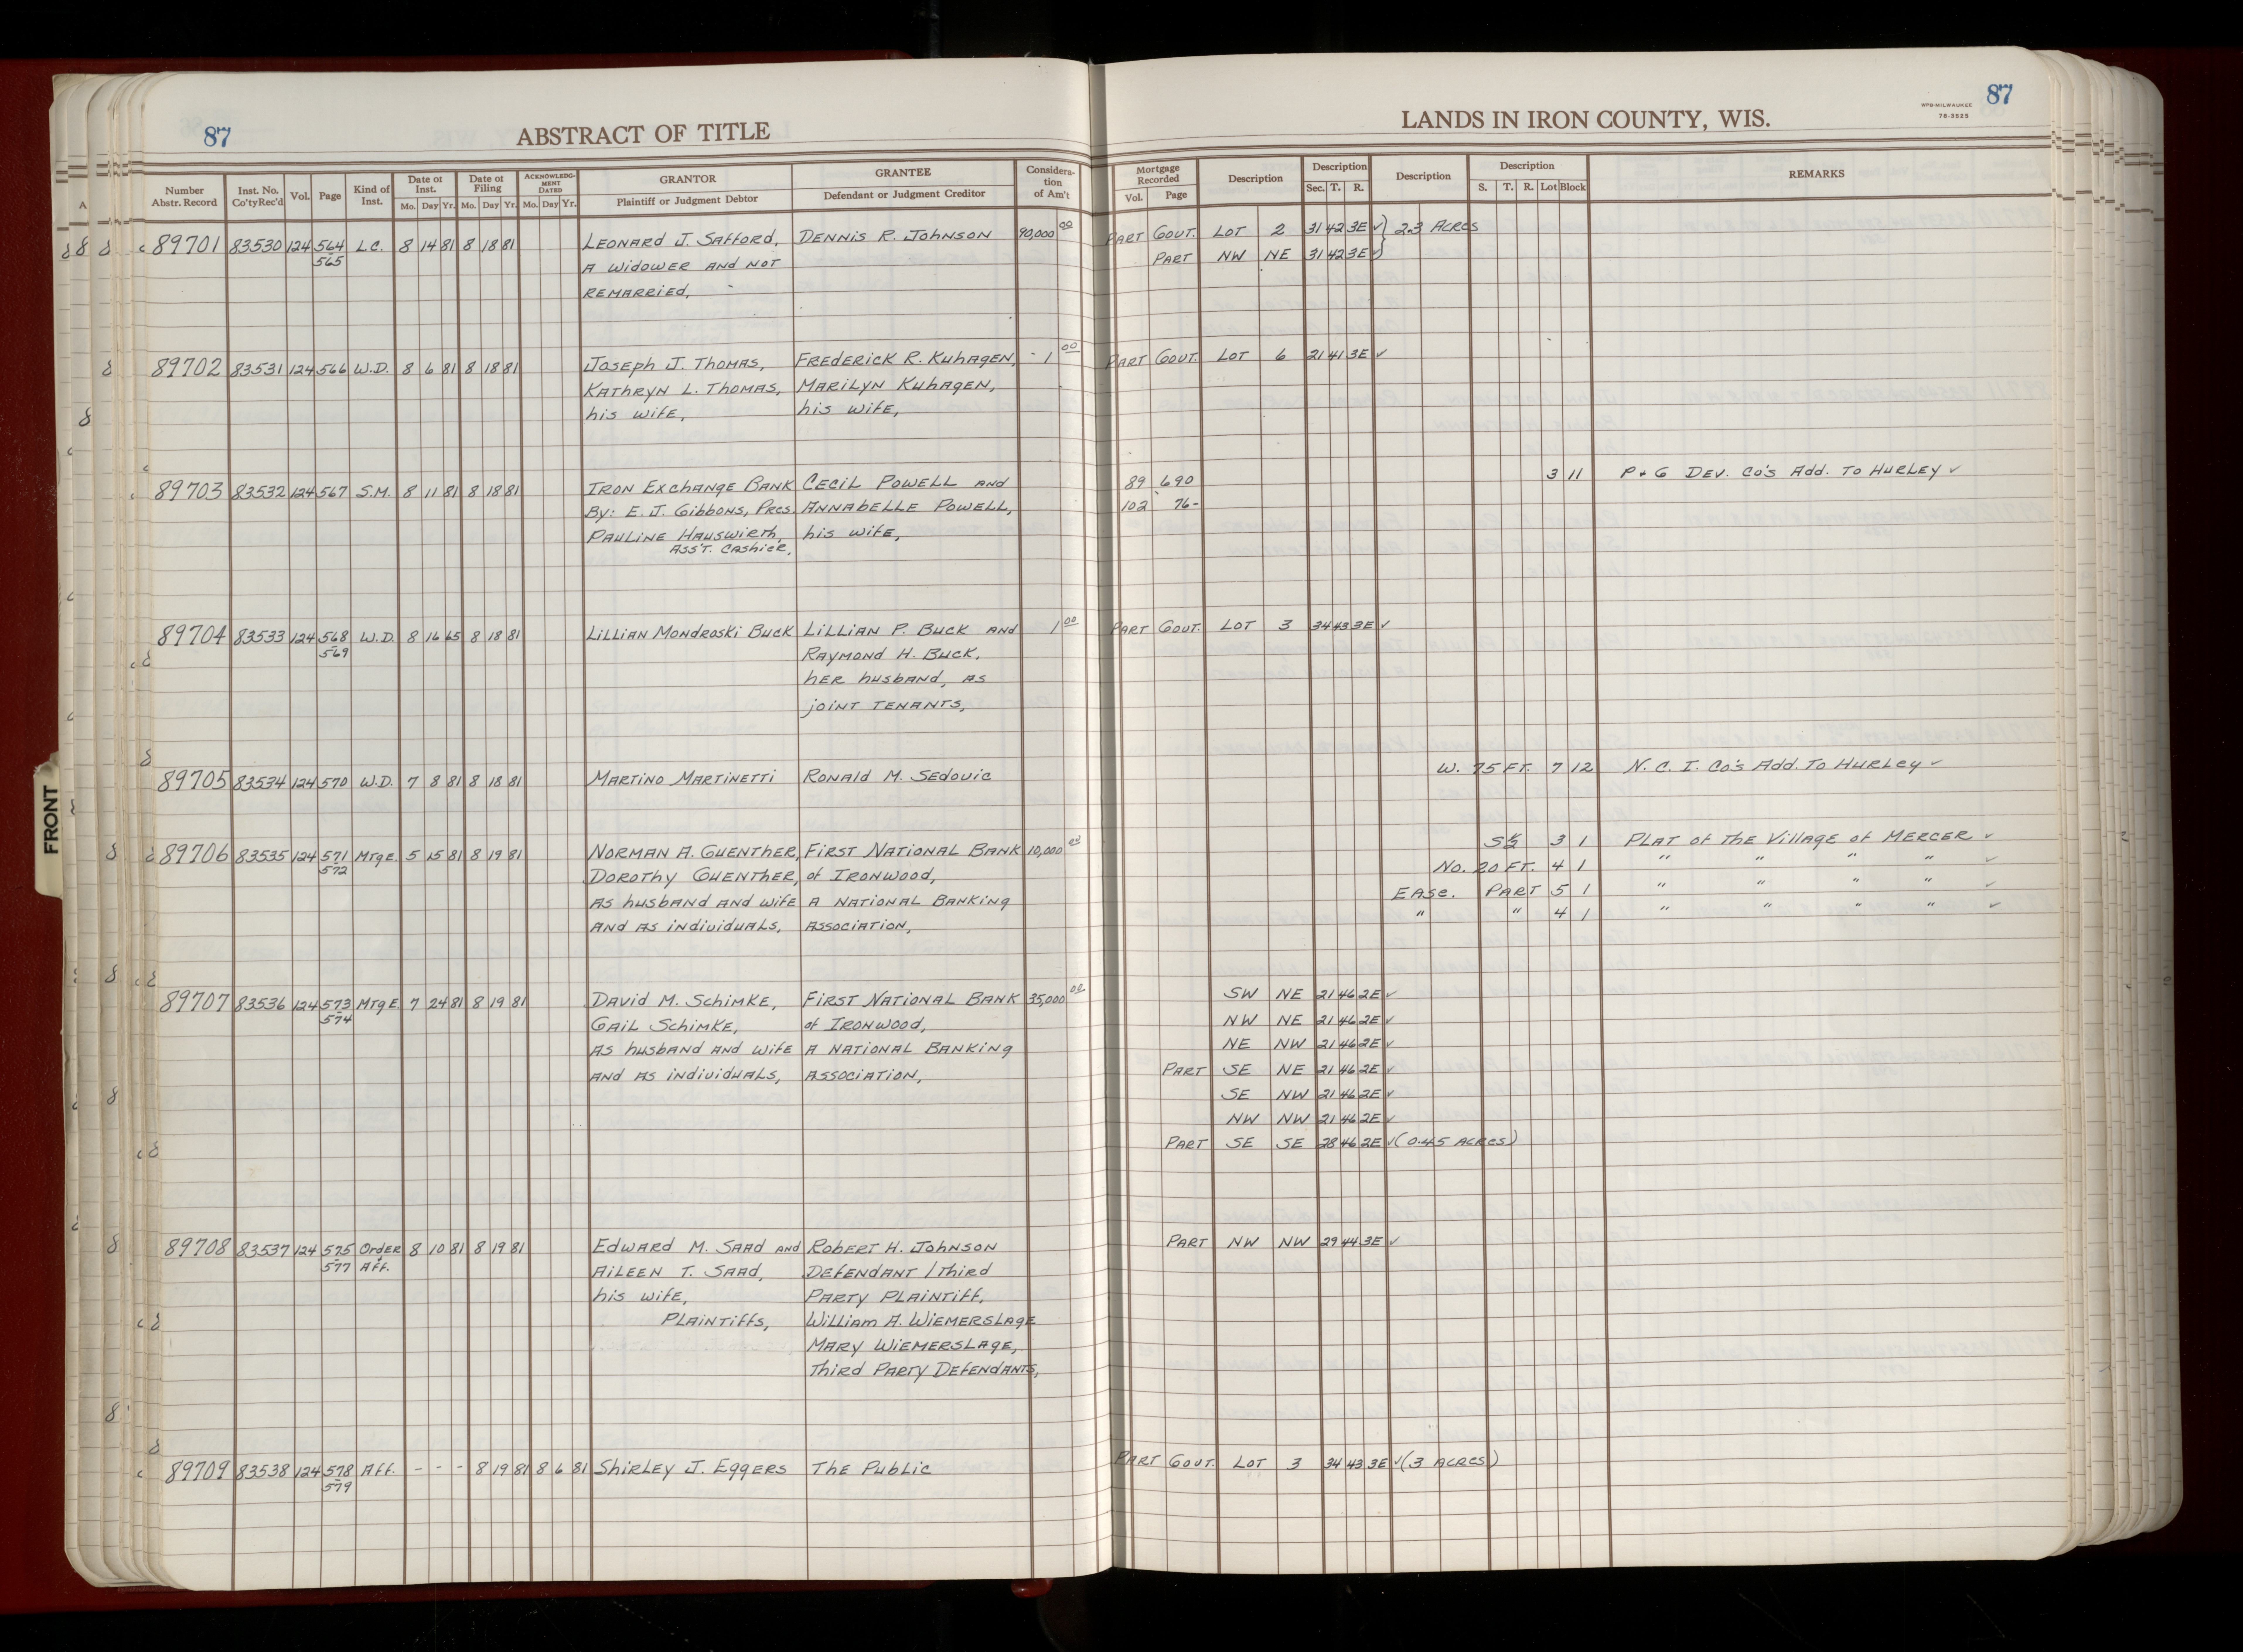 87
ABSTRACT OF TITLE
LANDS IN IRON COUNTY, WIS.
WPB-MILWAUKEE
76-3525
87
Number Abstr. Record
Inst. No. Co'ty Rec'd
Vol.
Page
Kind of Inst.
Date of Inst.
Mo. Day Yr.
Date of Filing
Mo. Day Yr.
ACKNOWLEDGMENT DATED
Mo. Day Yr.
GRANTOR
Plaintiff or Judgment Debtor
GRANTEE
Defendant or Judgment Creditor
Consideration of Am't
Mortgage Recorded
Vol. Page
Description
Description
Sec. T. R.
Description
Description
S. T. R. Lot Block
REMARKS
89701 83530 124 564 L.C. 8 14 81 8 18 81 Leonard J. Safford, Dennis R. Johnson 90,000 00 Part Gout. Lot 2 31 42 3E ✓ } 2.3 Acres
565 A widower and not Part NW NE 31 42 3E ✓
remarried,
89702 83531 124 566 W.D. 8 6 81 8 18 81 Joseph J. Thomas, Frederick R. Kuhagen, 1 00 Part Gout. Lot 6 21 41 3E ✓
Kathryn L. Thomas, Marilyn Kuhagen,
his wife, his wife,
89703 83532 124 567 S.M. 8 11 81 8 18 81 Iron Exchange Bank Cecil Powell and 89 690 3 11 P + G Dev. Co's Add. To Hurley ✓
By: E. J. Gibbons, Pres. Annabelle Powell, 102 76-
Pauline Hauswirth, his wife,
Ass't. Cashier,
89704 83533 124 568 W.D. 8 16 65 8 18 81 Lillian Mondroski Buck Lillian P. Buck and 1 00 Part Gout. Lot 3 34 43 3E ✓
569 Raymond H. Buck,
her husband, as
joint tenants,
89705 83534 124 570 W.D. 7 8 81 8 18 81 Martino Martinetti Ronald M. Sedovic W. 75 Ft. 7 12 N. C. I. Co's Add. To Hurley ✓
89706 83535 124 571 Mtge. 5 15 81 8 19 81 Norman A. Guenther, First National Bank 10,000 00 S½ 3 1 Plat of the Village of Mercer ✓
572 Dorothy Guenther, of Ironwood, No. 20 Ft. 4 1 " " " " ✓
as husband and wife a National Banking Ease. Part 5 1 " " " " ✓
and as individuals, Association, " " 4 1 " " " " ✓
89707 83536 124 573 Mtge. 7 24 81 8 19 81 David M. Schimke, First National Bank 35,000 00 SW NE 21 46 2E ✓
574 Gail Schimke, of Ironwood, NW NE 21 46 2E ✓
as husband and wife a National Banking NE NW 21 46 2E ✓
and as individuals, Association, Part SE NE 21 46 2E ✓
SE NW 21 46 2E ✓
NW NW 21 46 2E ✓
Part SE SE 28 46 2E ✓ (0.45 Acres)
89708 83537 124 575 Order 8 10 81 8 19 81 Edward M. Saad and Robert H. Johnson Part NW NW 29 44 3E ✓
577 Aff. Aileen T. Saad, Defendant / Third
his wife, Party Plaintiff,
Plaintiffs, William A. Wiemerslage
Mary Wiemerslage,
Third Party Defendants,
89709 83538 124 578 Aff. - - - 8 19 81 8 6 81 Shirley J. Eggers The Public Part Gout. Lot 3 34 43 3E ✓ (.3 Acres)
579
FRONT